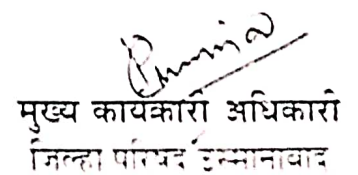 मुख्य कार्यकारी अधिकारी
जिल्हा परिषद उस्मानाबाद